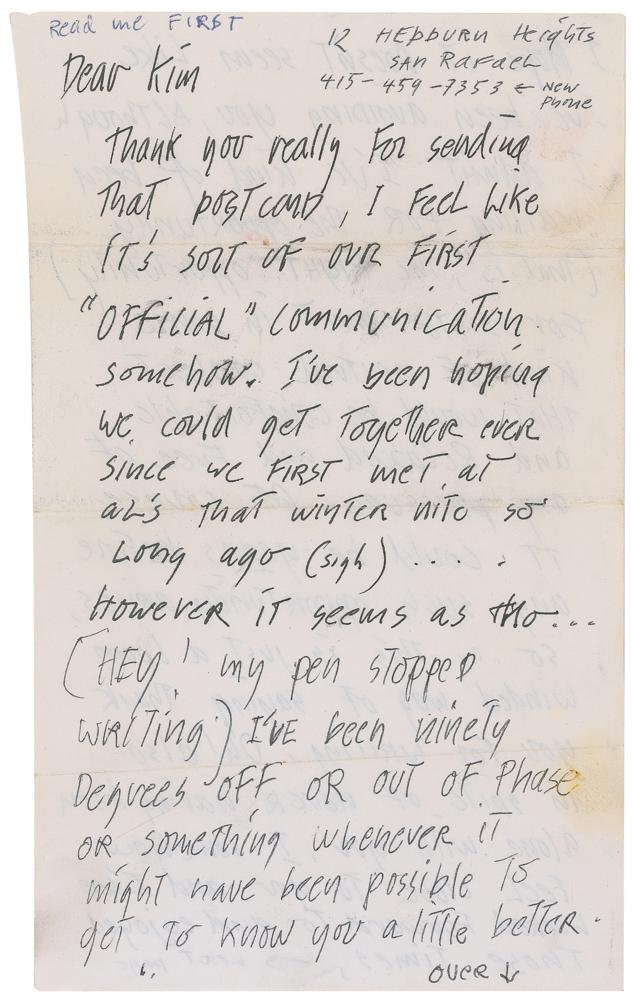 Read me FIRST
12 HEPBURN HeigHTS
SAN RaFaEL
415-459-7353 ← NEW
PHONE
Dear Kim
Thank you really For sending
That postcard, I FeeL Like
IT's sorT OF OUR FIRST
"OFFiciAL" communication
somehow. I've been hoping
we could get TogeTHer ever
since we FIRST meT at
aL's THaT winTer nite so
Long ago (sigh) ....
However iT seems as tho...
(HEY! my pen stopped
wriTing!) I'VE been ninety
Degrees OFF OR OUT OF PHase
OR something whenever iT
might have been possible To
geT To know you a little better.
OVER ↓